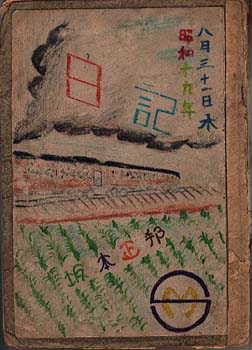 八月三十一日木
昭和十九年
日記
坂本正邦